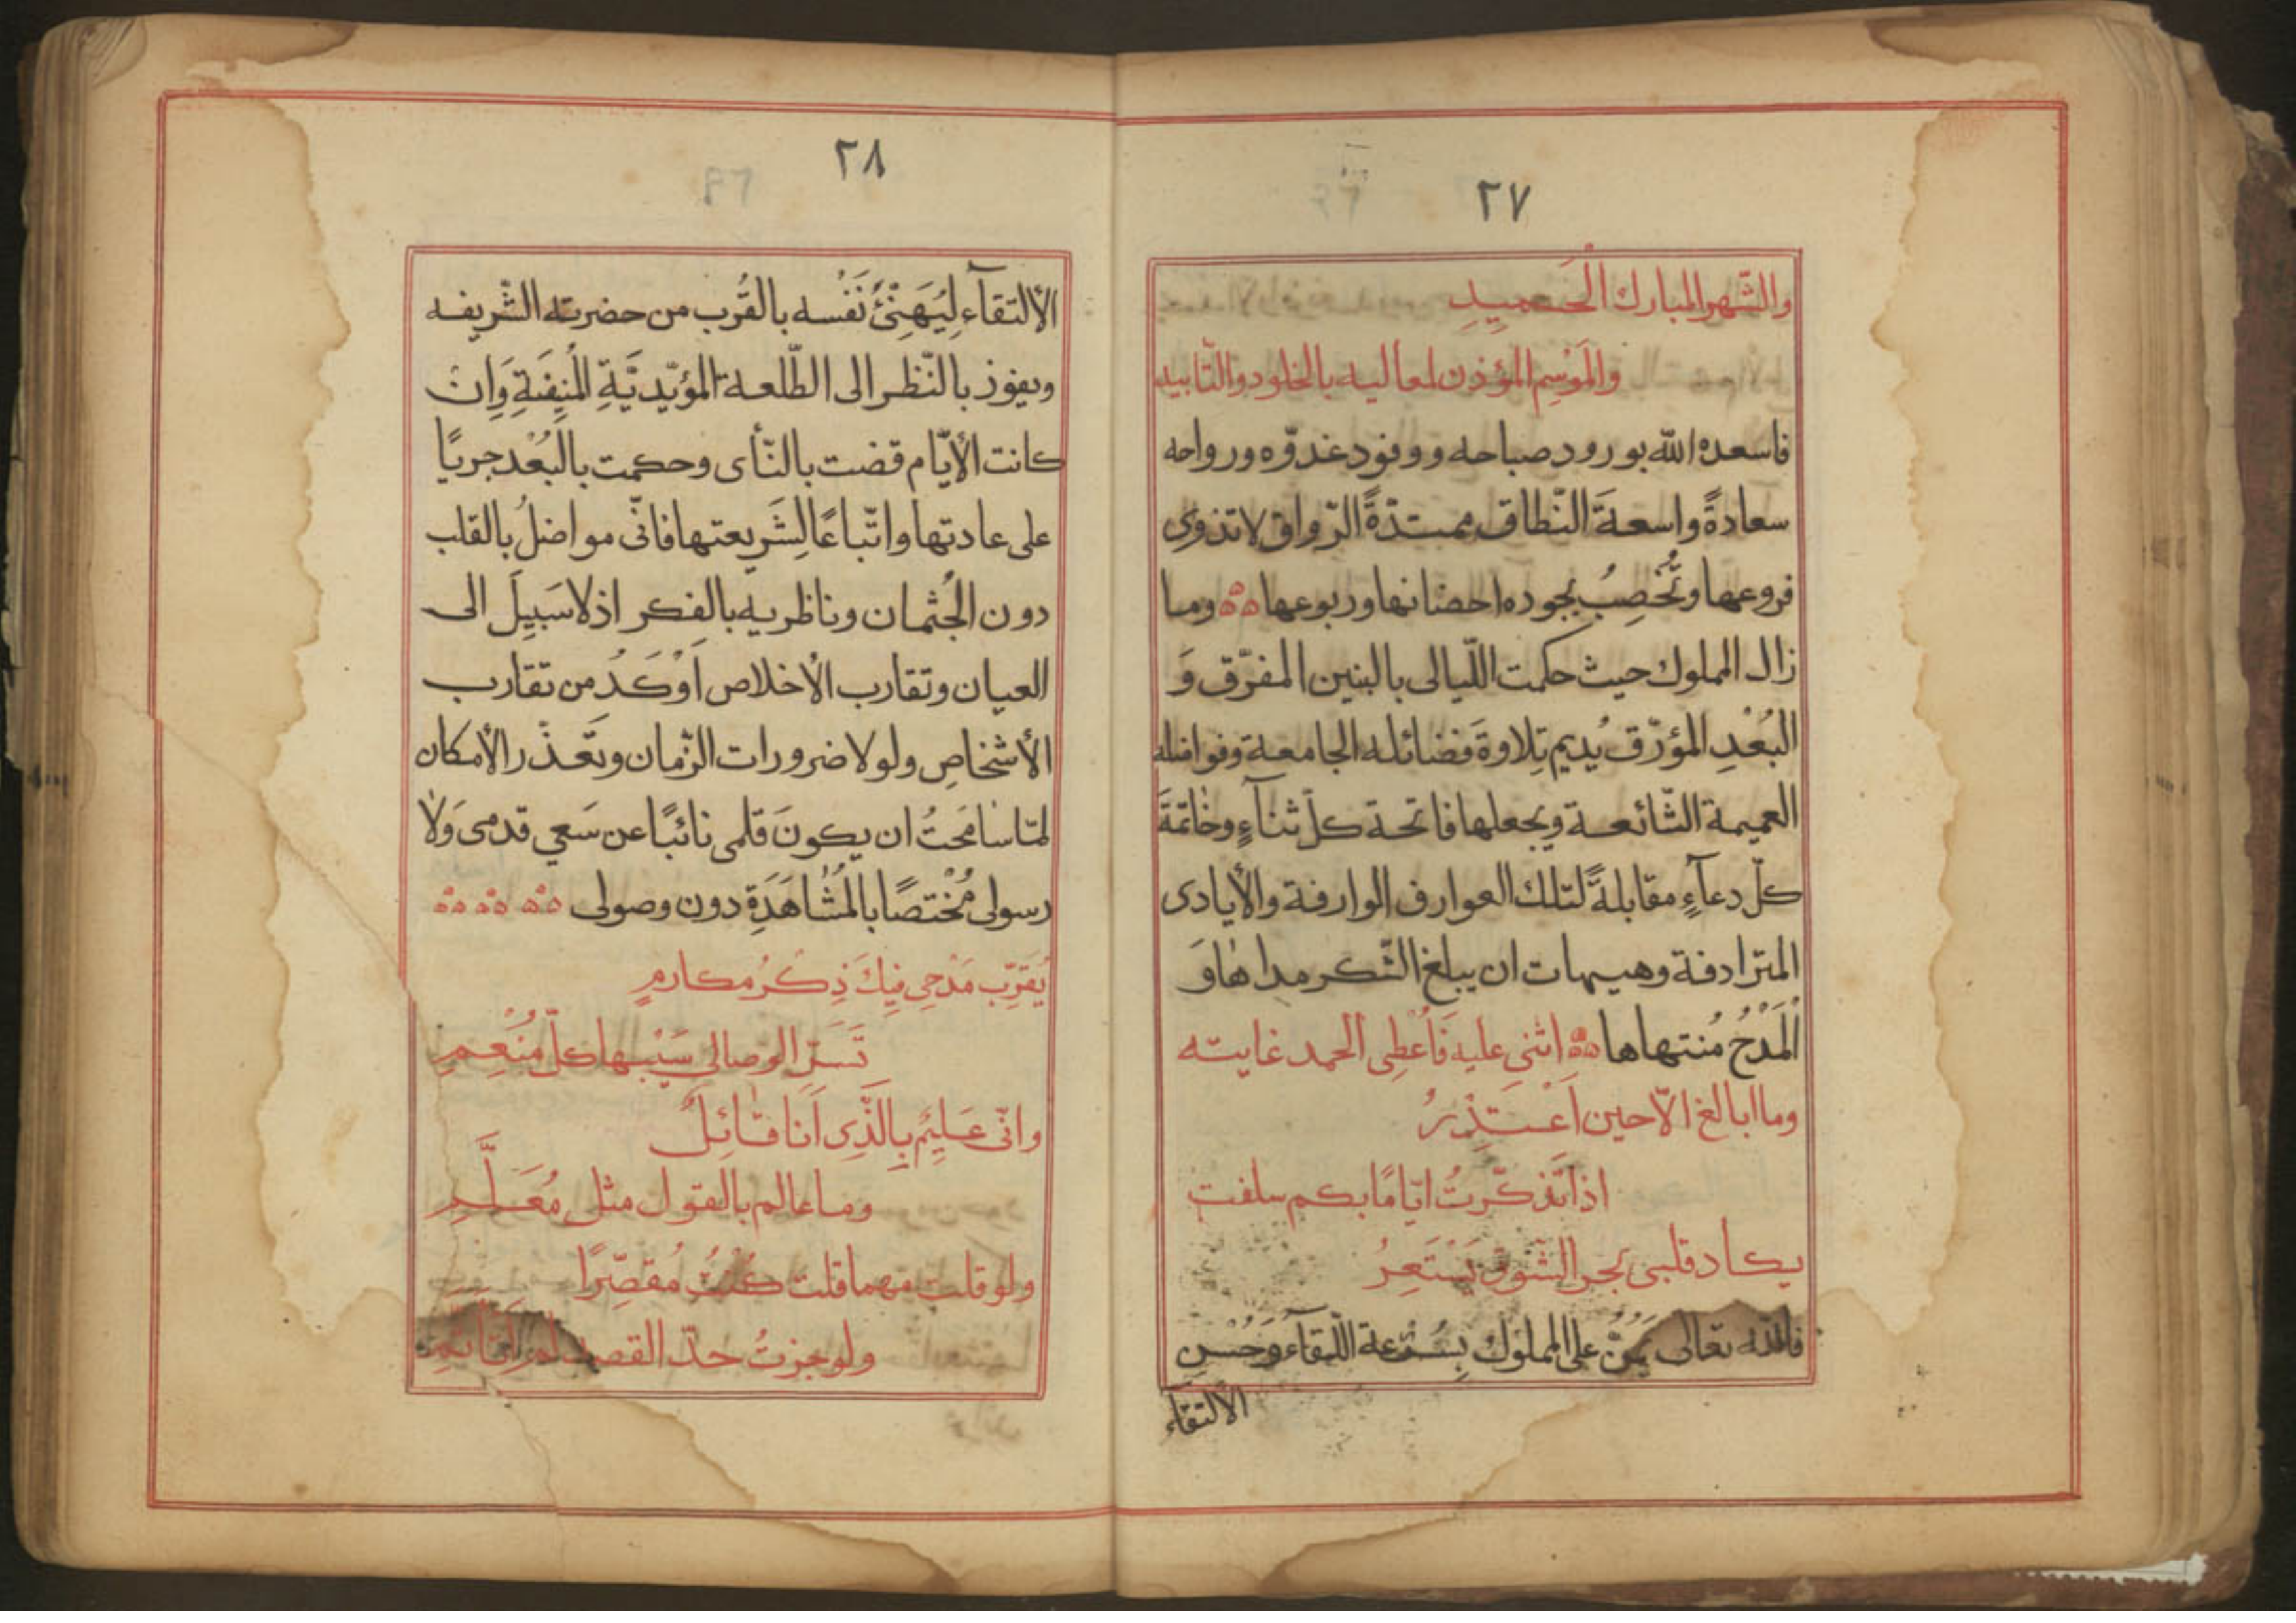 ٢٧
والشّهر المبارك الحَميدِ
والمَوْسِم المؤذن لمعاليه بالخلود والتّأبيد
فاسعده الله بورود صباحه ووفود غدوّه ورواحه
سعادةً واسعةَ النّطاق ممتدّةً الرّواق لا تذوى
فروعها وتُخصِبُ بجوده احضانها وربوعها وما
زال المملوك حيث حكمت اللّيالى بالبنين المفرّق وَ
البُعْدِ المؤرّق يُديم تِلاوةَ فضائله الجامعة وفواضله
العميمة الشّائعة ويجعلها فاتحة كلّ ثنآءٍ وخاتمةَ
كلّ دعآءٍ مقابلةً لتلك العوارف الوارفة والأيادى
المترادفة وهيهات ان يبلغ الشّكر مداها وَ
الْمَدْحُ مُنتهاها اثنى عليه فَاُعْطِى الحمد غايته
وما ابالغ الّا حين اَعْتَذِرُ
اذا تَذكّرتُ ايّامًا بكم سلفت
يكاد قلبى بحر الشّوق يَسْتَعِرُ
فالله تعالى يَمُنّ على المملوك بِسُرْعة اللّقآء وَحُسْنِ
الالتقاء
٢٨
الألتقآء لِيُهَنِّئَ نَفْسه بالقُرب من حضرته الشّريفه
ويفوز بالنّظر الى الطّلعة المؤيّديَّةِ المُنِيفَةِ وَاِنْ
كانت الأيّام قضت بالنّأى وحكمت بالْبُعْد جريًا
على عادتها واتّباعًا لِشَريعتها فانّى مواصلُ بالقلب
دون الجُثمان وناظر يه بالفكر اذ لا سَبيلَ الى
العيان وتقارب الأخلاص اَوْكَدُ من تقارب
الأشخاصِ ولولا ضرورات الزّمان وتَعذّر الأمكان
لمّا سامَحتُ ان يكونَ قلمى نائبًا عن سَعي قدمى وَلا
رسولى مُخْتصًا بالْمُشَاهَدَةِ دون وصولى
يُقَرِّب مَدْحِى فِيكَ ذِكْرُ مكارمٍ
تَسَرّ الوصالى سَيْبها كلّ مُنْعِمِ
وانّى عَلِيمٌ بِالَّذِى اَنا قائِلٌ
وما عالم بالقول مثل مُعَلَّمِ
ولو قلت مهما قلت كُنْتُ مُقصِّرًا
ولو جزتُ حدّ القصد لم